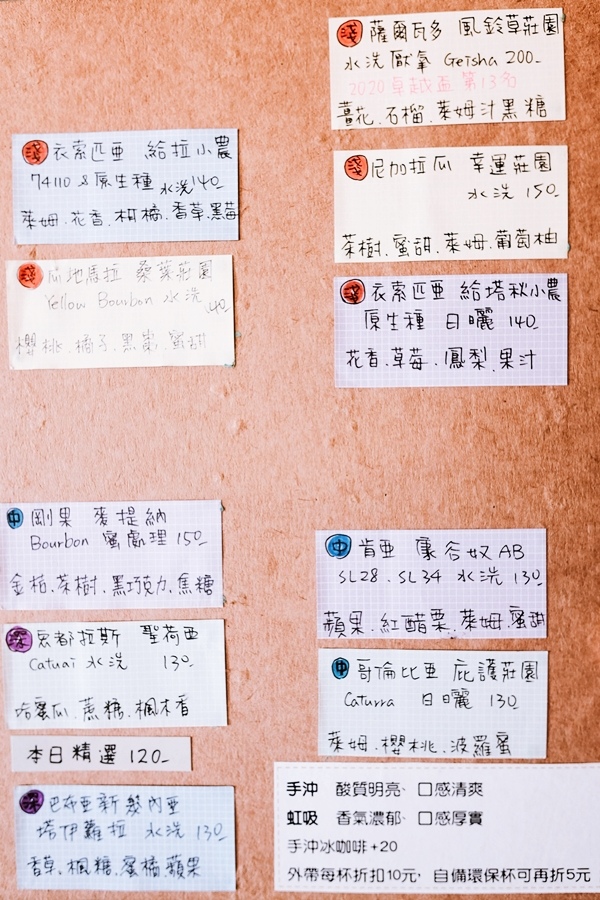 淺 衣索匹亞 給拉小農
74110 & 原生種 水洗 140-
萊姆.花香.柑橘.香草.黑莓
淺 瓜地馬拉 桑葉莊園
Yellow Bourbon 水洗 140-
櫻桃.橘子.黑 蜜甜
淺 薩爾瓦多 風鈴草莊園
水洗厭氧 Geisha 200-
2020 卓越盃 第13名
薑花.石榴.萊姆汁黑糖
淺 尼加拉瓜 幸運莊園
水洗 150-
茶樹.蜜甜.萊姆.葡萄柚
淺 衣索匹亞 給塔秋小農
原生種 日曬 140-
花香.草莓.鳳梨.果汁
中 剛果 麥提納
Bourbon 蜜處理 150-
金柏.茶樹.黑巧克力.焦糖
深 宏都拉斯 聖荷亞
Catuai 水洗 130-
哈蜜瓜.蔗糖.楓木香
本日精選 120-
深 巴布亞新幾內亞
塔伊蘿拉 水洗 130-
香草.楓糖.蜜橘.蘋果
中 肯亞 康谷奴 AB
SL28.SL34 水洗 130-
蘋果.紅醋栗.萊姆.蜜甜
中 哥倫比亞 庇護莊園
Caturra 日曬 130-
萊姆.櫻桃.波羅蜜
手沖 酸質明亮、口感清爽
虹吸 香氣濃郁、口感厚實
手沖冰咖啡+20
外帶每杯折扣10元，自備環保杯可再折5元